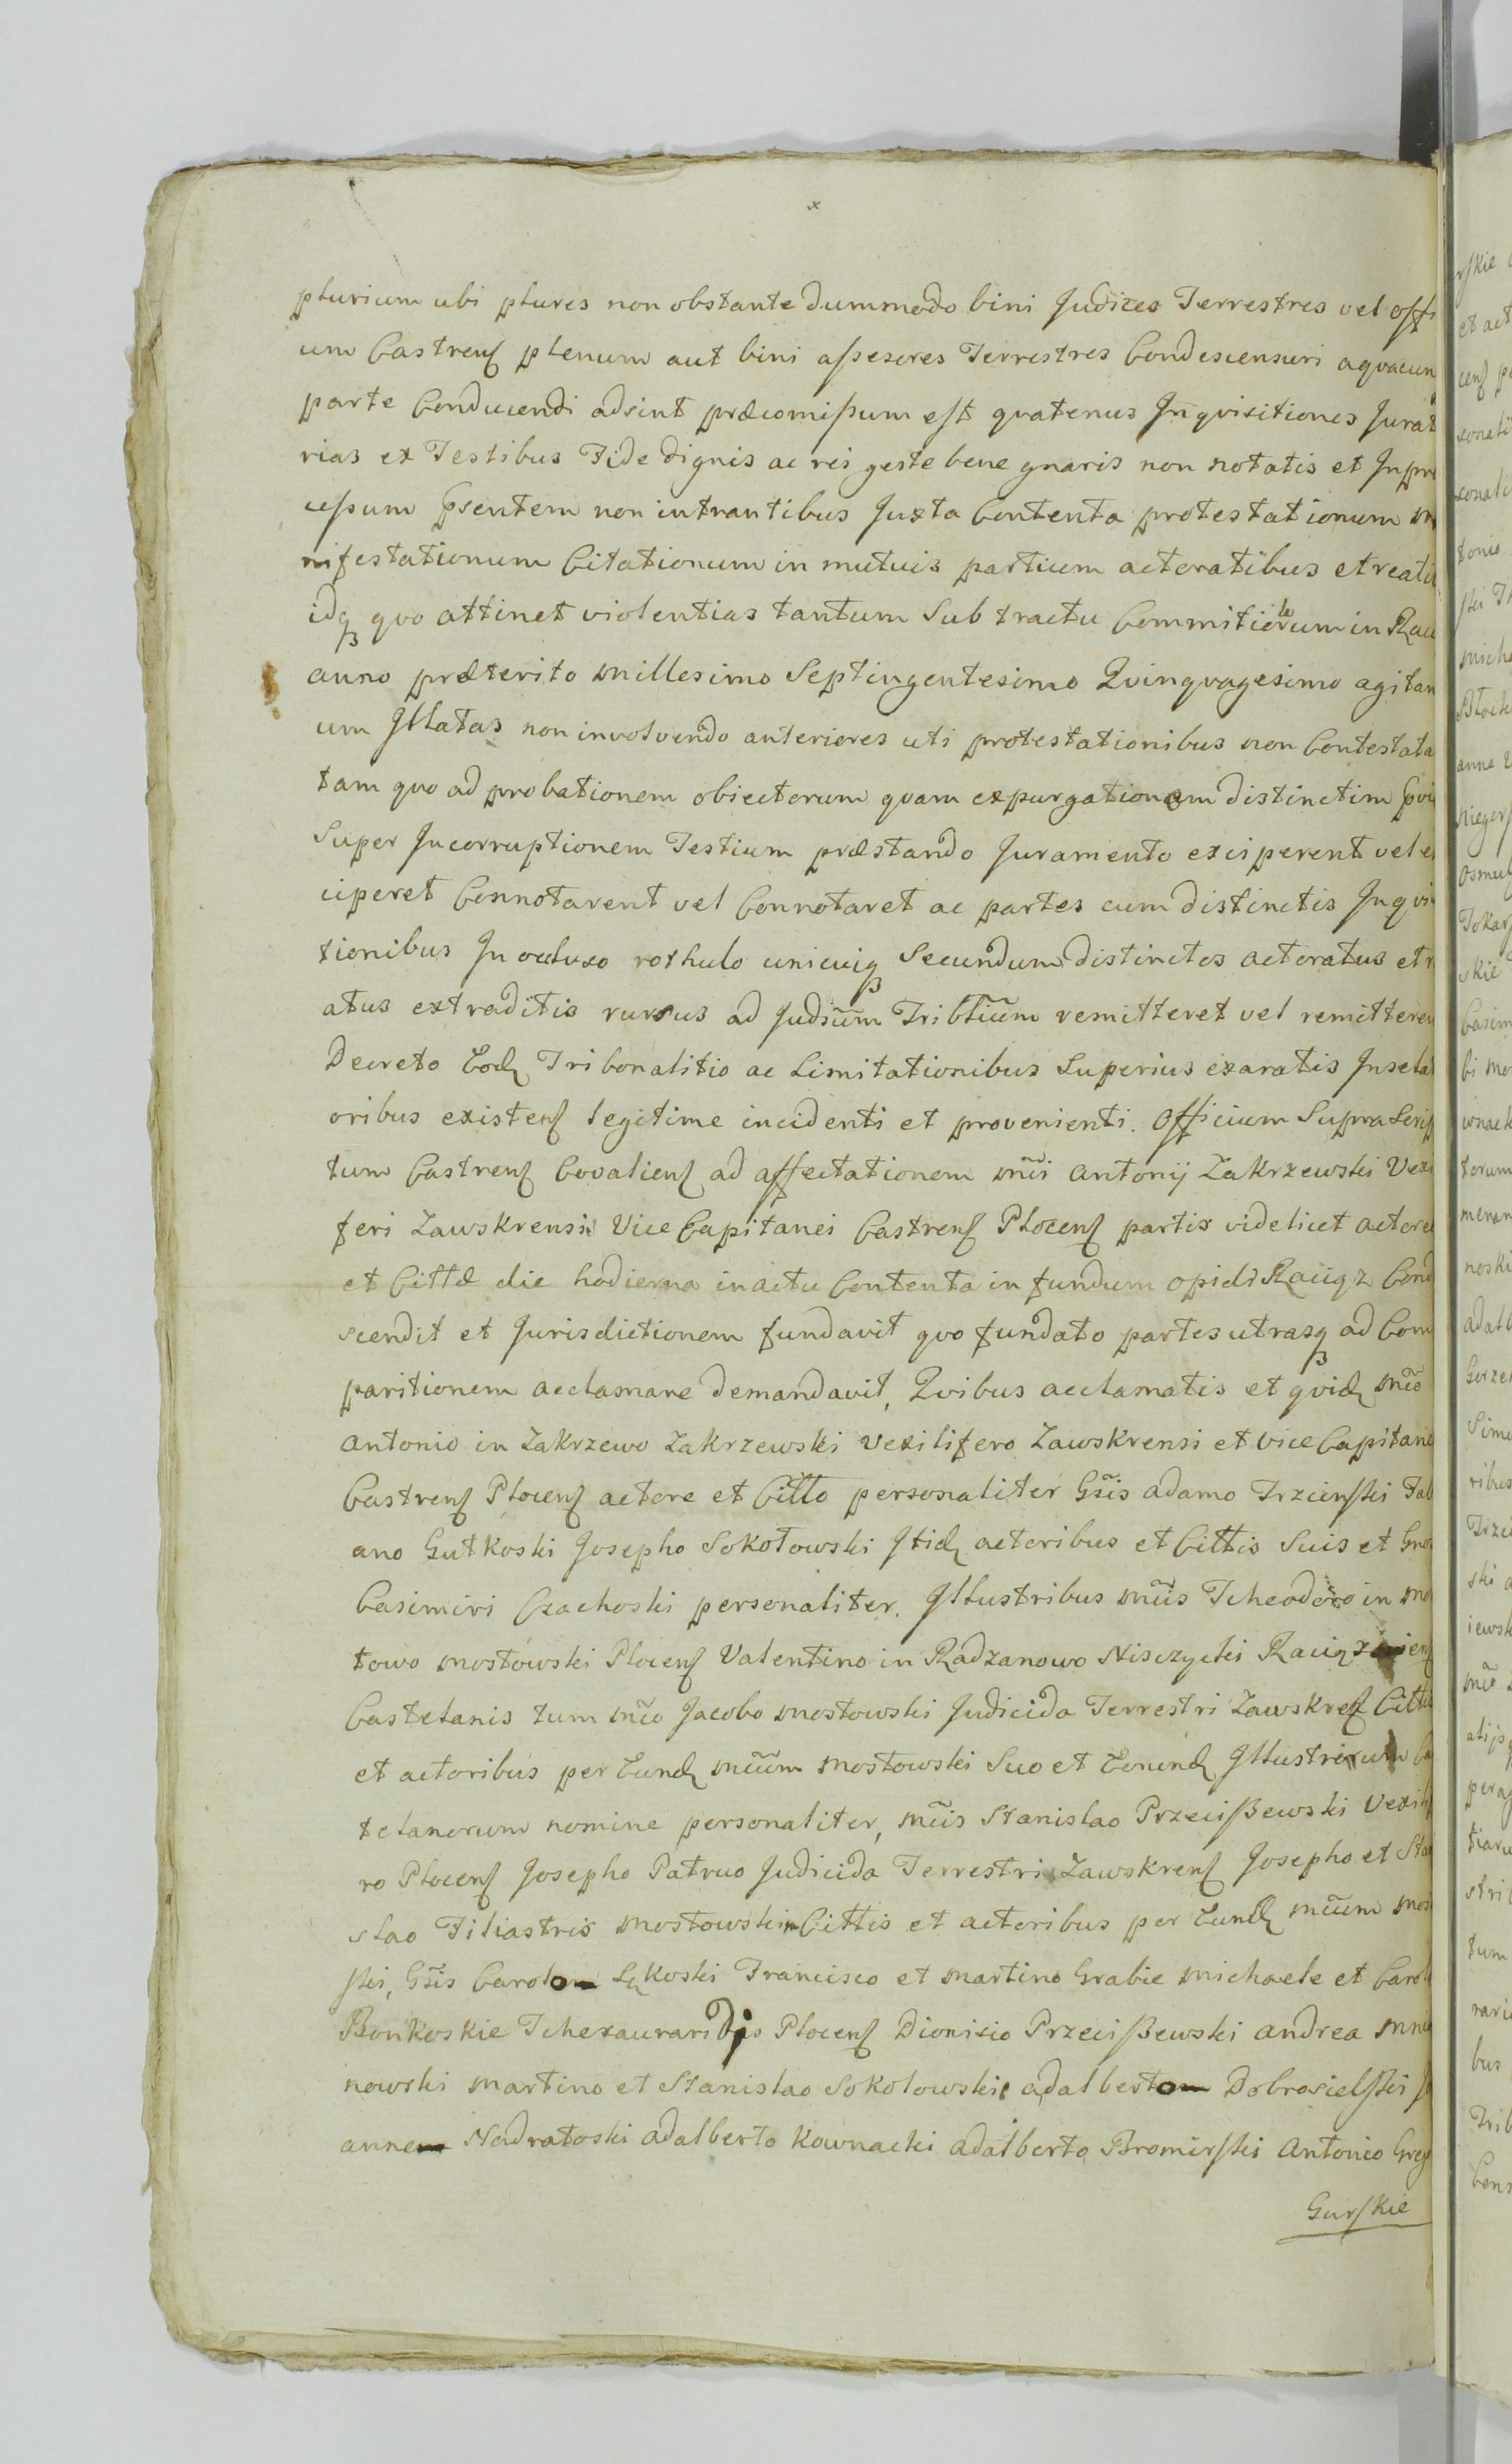 plurium ubi plures non obstante dummodo bini Judices Terrestres vel offi
um Castrens plenum aut bini assesores Terrestres Condescensuri aqvacun
parte Conducendi adsint præcomissum est qvatenus Inqvisitiones Jurat
rias ex Testibus Fide dignis ac rei geste bene gnaris non notatis et In pro
cessum Psentem non intrantibus Juxta Contenta protestationum m
nifestationum Citationum in mutuis partium actoratibus et reati
idq qvo attinet violentias tantum Sub tractu Commitiolarum in Rac
anno præterito Millesimo Septingentesimo Qvinqvagesimo agitan
um Illatas non involvendo anteriores uti protestationibus non Contestata
tam qvo ad probationem obiectorum qvam expurgationem distinctim Pvi
Super Incorruptionem Testium præstando Juramento exciperent vel e
ciperet Connotarent vel Connotaret ac partes cum distinctis Inqvi
tionibus In occluso rothulo unicuiq Secundum distinctos actoratus et r
atus extraditis rursus ad Judium Triblium remitteret vel remitteren
Decreto Eod Tribonalitio ac Limitationibus Superius exaratis In sela
oribus existens legitime incidenti et provenienti. Officium Supra Scrip
tum Castrens Covaliens ad affectationem Mci Antonij Zakrzewski Vexi
feri Zawskrensis Vice Capitanei Castrens Plocens partis videlicet actore
et Cittæ die hodierna in actu Contenta in fundum opidi Raciąz Cond
scendit et Jurisdictionem fundavit qvo fundato partes utrasq ad Com
paritionem acclamare demandavit, Qvibus acclamatis et qvid Mco
Antonio in Zakrzewo Zakrzewski Vexilifero Zawskrensi et Vice Capitane
Castrens Plocens actore et Citto personaliter Gsis Adamo Trzcinski Fab
ano Gutkoski Josepho Sokołowski Itid actoribus et Cittis Suis et Gno
Casimiri Czachoski personaliter. Illustribus Mcis Tcheodoro in Mo
towo Mostowski Plocens Valentino in Radzanowo Nisczycki Raciąz iens
Castelanis tum Mco Jacobo Mostowski Judicida Terrestri Zawskrens Citti
et actoribus per Eund Mcum Mostowski Suo et Eorund Illustrium Ca
telanorum nomine personaliter, Mcis Stanislao Przeciszewski Vexili
ro Plocens Josepho Patruo Judicida Terrestri Zawskrens Josepho et Sta
slao Filiastris Mostowski Cittis et actoribus per Eund Mcum Mos
ski, Gsis Carolo Łękoski Francisco et Martino Grabie Michaele et Carol
Bonkoskie Tchezauraridis Plocens Dionisio Przeciszewski Andrea Mni
nowski Martino et Stanislao Sokolowskie Adalberto Dobrosielski J
anne Nadratoski Adalberto Kownacki Adalberto Bromirski Antonio Greg
Gurskie